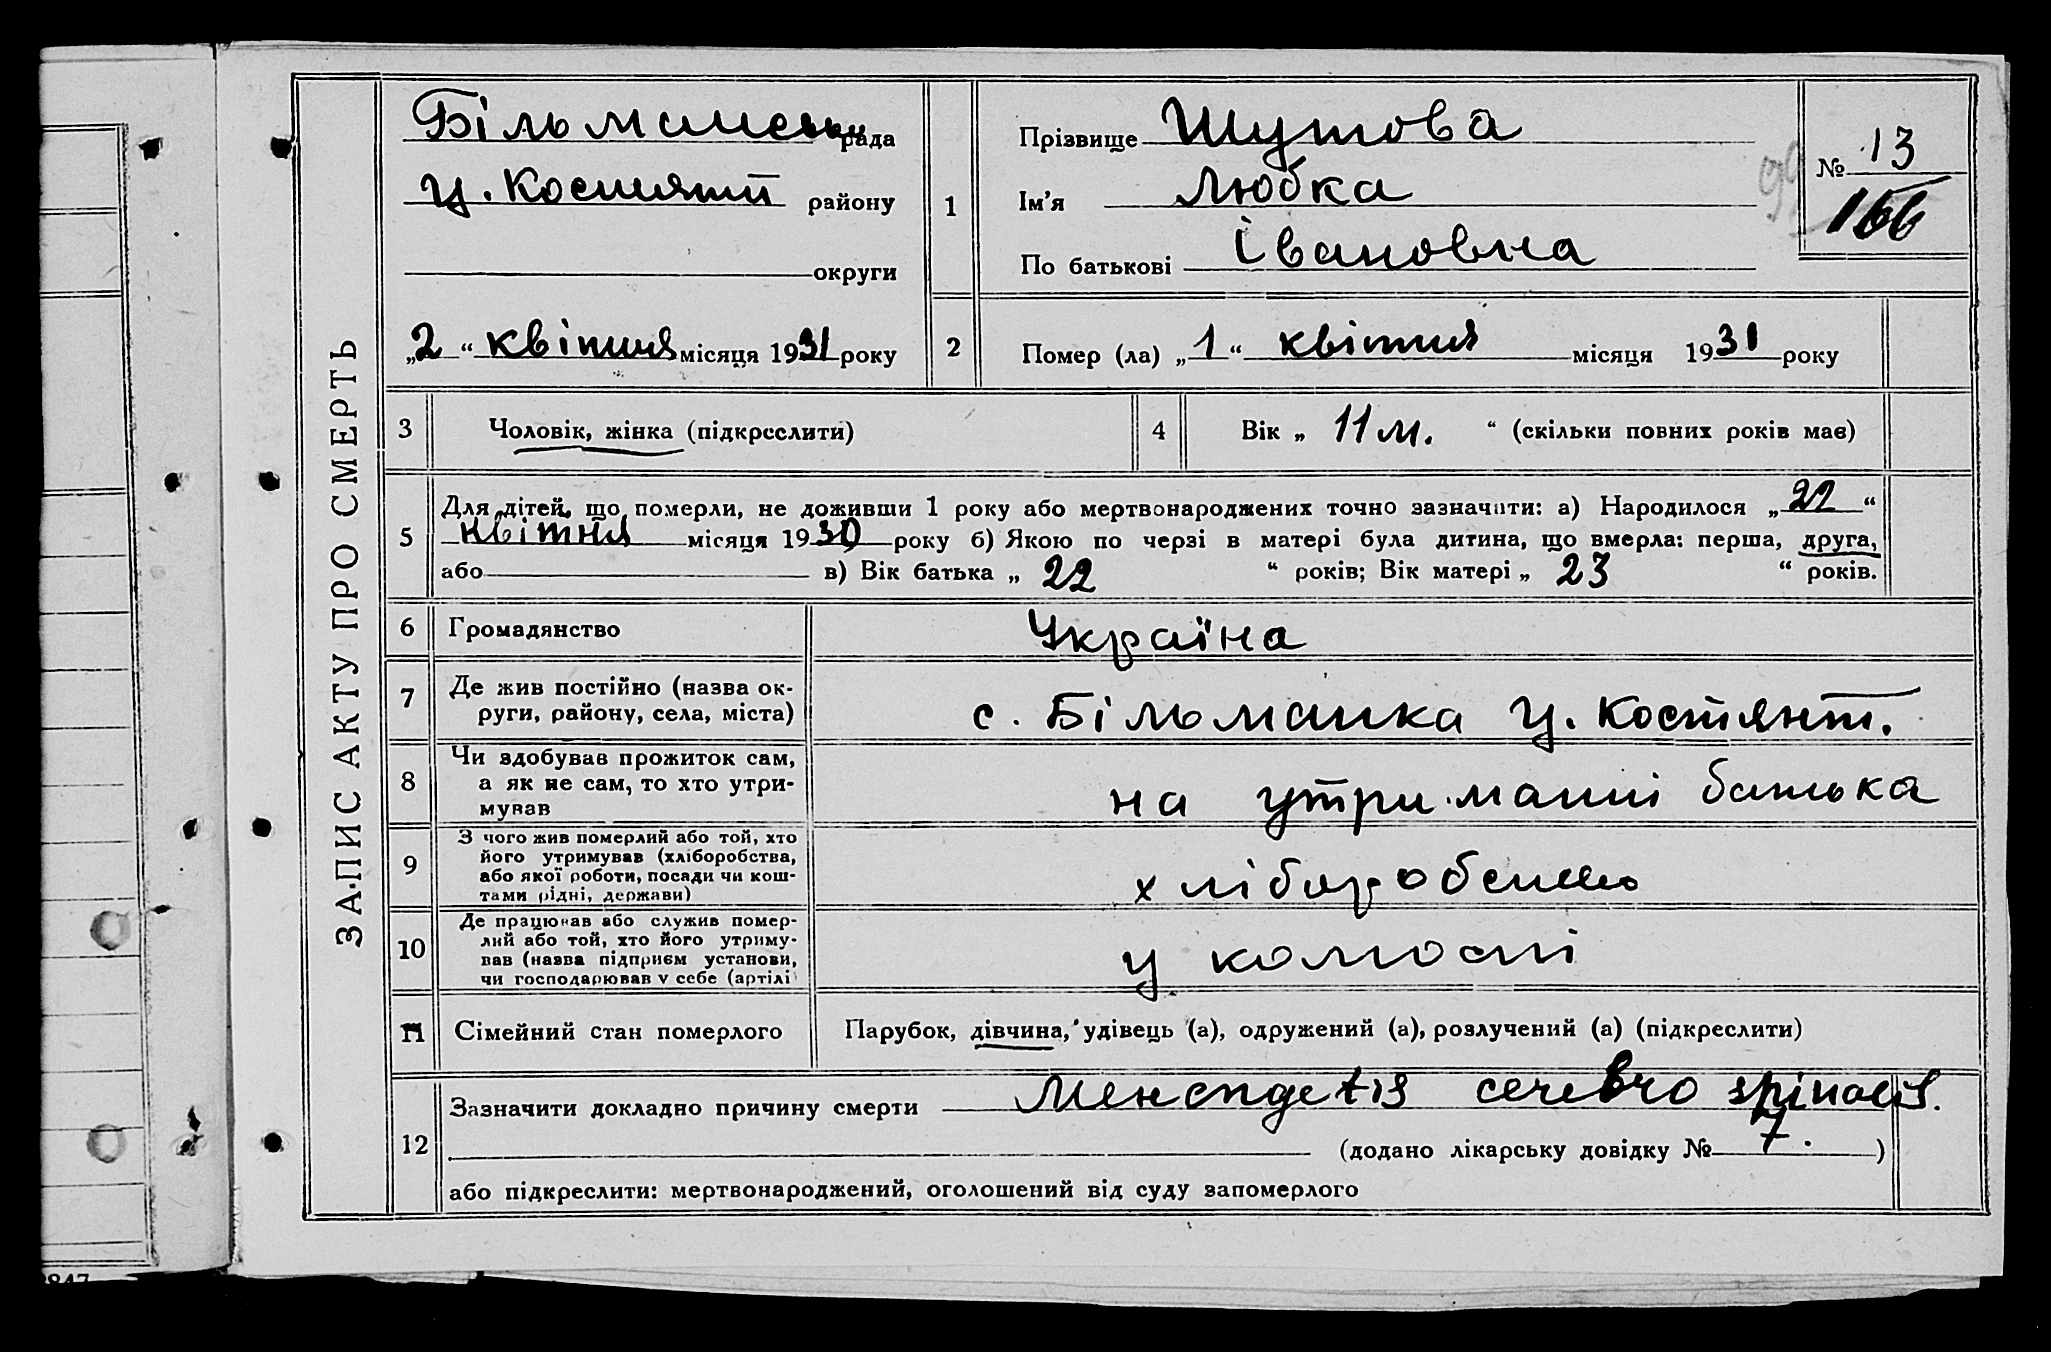 ЗАПИС АКТУ ПРО СМЕРТЬ
Більманська рада
Ц. Костянт району
округи
„2“ квітня місяця 1931 року
1
Прізвище Шутова
Ім'я Любка
По батькові Івановна
№ 13
166
2
Помер (ла) „1“ квітня місяця 1931 року
3
Чоловік, жінка (підкреслити)
4
Вік „ 11 м. “ (скільки повних років має)
5
Для дітей, що померли, не доживши 1 року або мертвонароджених точно зазначити: а) Народилося „22“
квітня місяця 1930 року б) Якою по черзі в матері була дитина, що вмерла: перша, друга,
або в) Вік батька „ 22 “ років; Вік матері „ 23 “ років.
6
Громадянство Україна
7
Де жив постійно (назва ок-
руги, району, села, міста)
с. Більманка Ц. Костянт.
8
Чи здобував прожиток сам,
а як не сам, то хто утри-
мував
на утриманні батька
9
З чого жив померлий або той, хто
його утримував (хліборобства,
або якої роботи, посади чи кош-
тами рідні, держави)
хліборобство
10
Де працював або служив помер-
лий або той, хто його утриму-
вав (назва підприєм установи,
чи господарював у себе (артілі
у колгоспі
11
Сімейний стан померлого
Парубок, дівчина, удівець (а), одружений (а), розлучений (а) (підкреслити)
12
Зазначити докладно причину смерти cerebro spinalis.
(додано лікарську довідку № 7. )
або підкреслити: мертвонароджений, оголошений від суду запомерлого